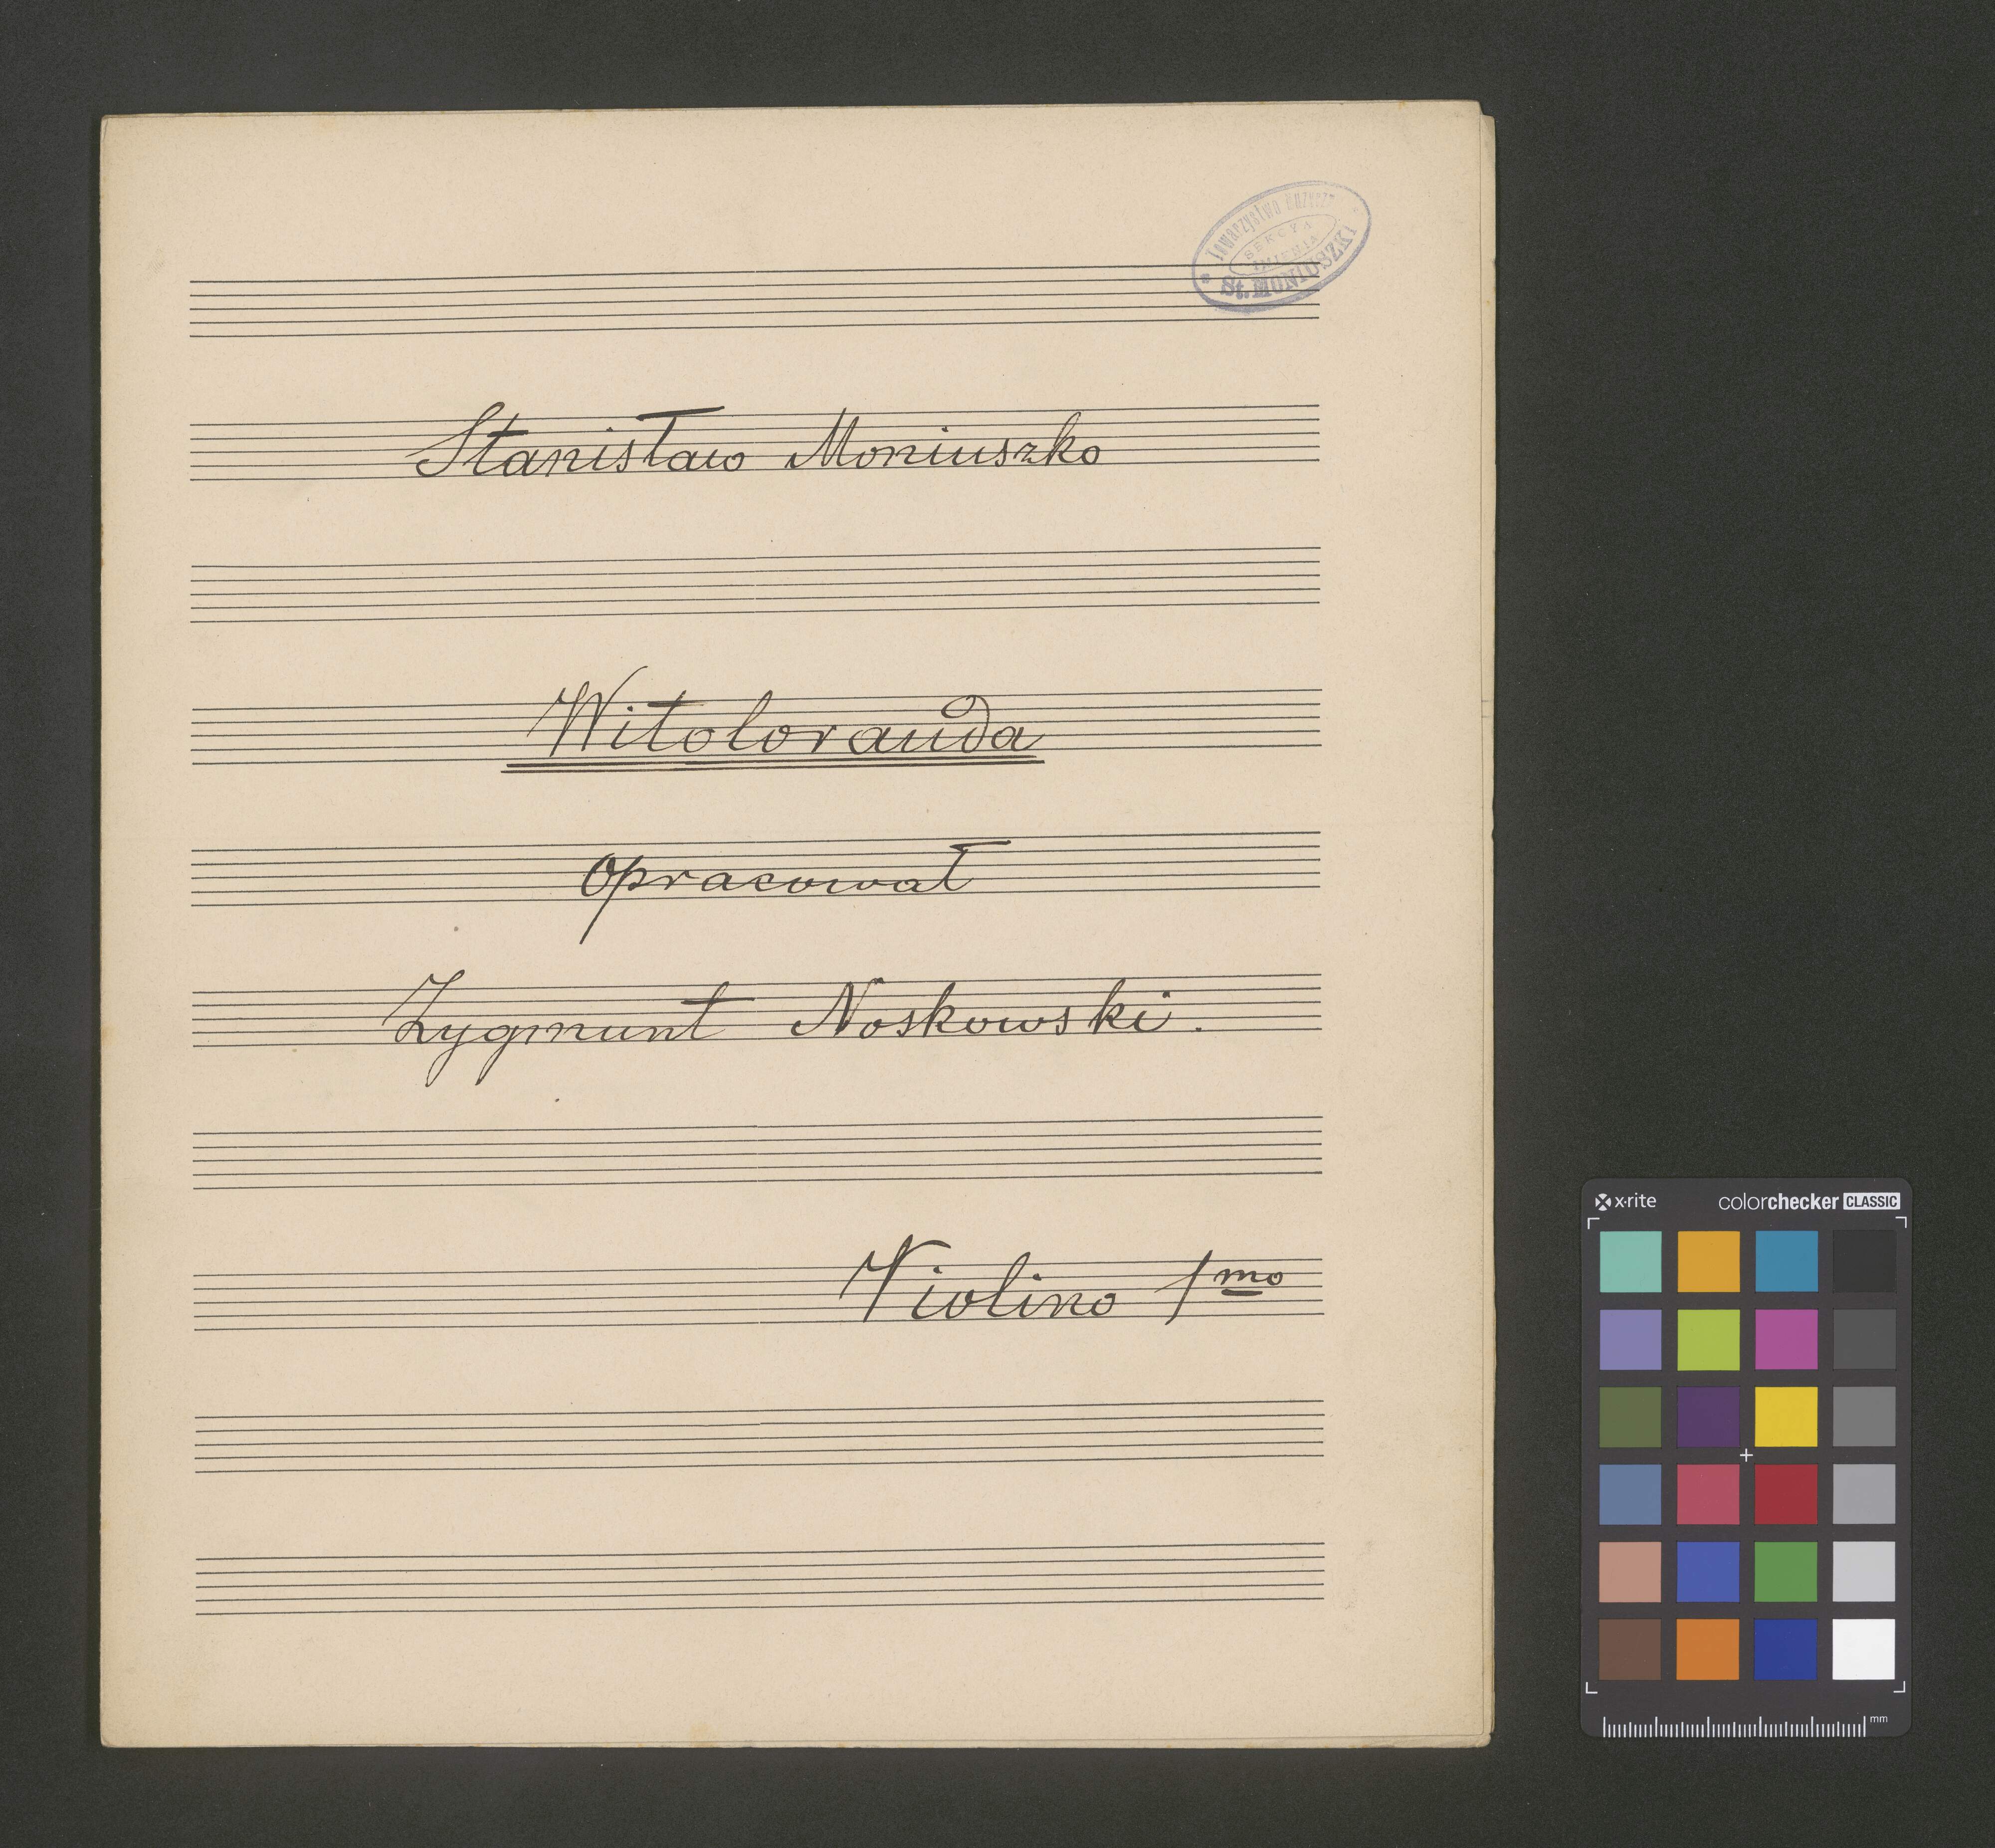 Towarzystwo Muzyczn
SEKCYA
IMIENIA
St. MONIUSZKI
Stanisław Moniuszko
Witolorauda
Opracował
Zygmunt Noskowski.
Violino 1mo
x·rite colorchecker CLASSIC
mm